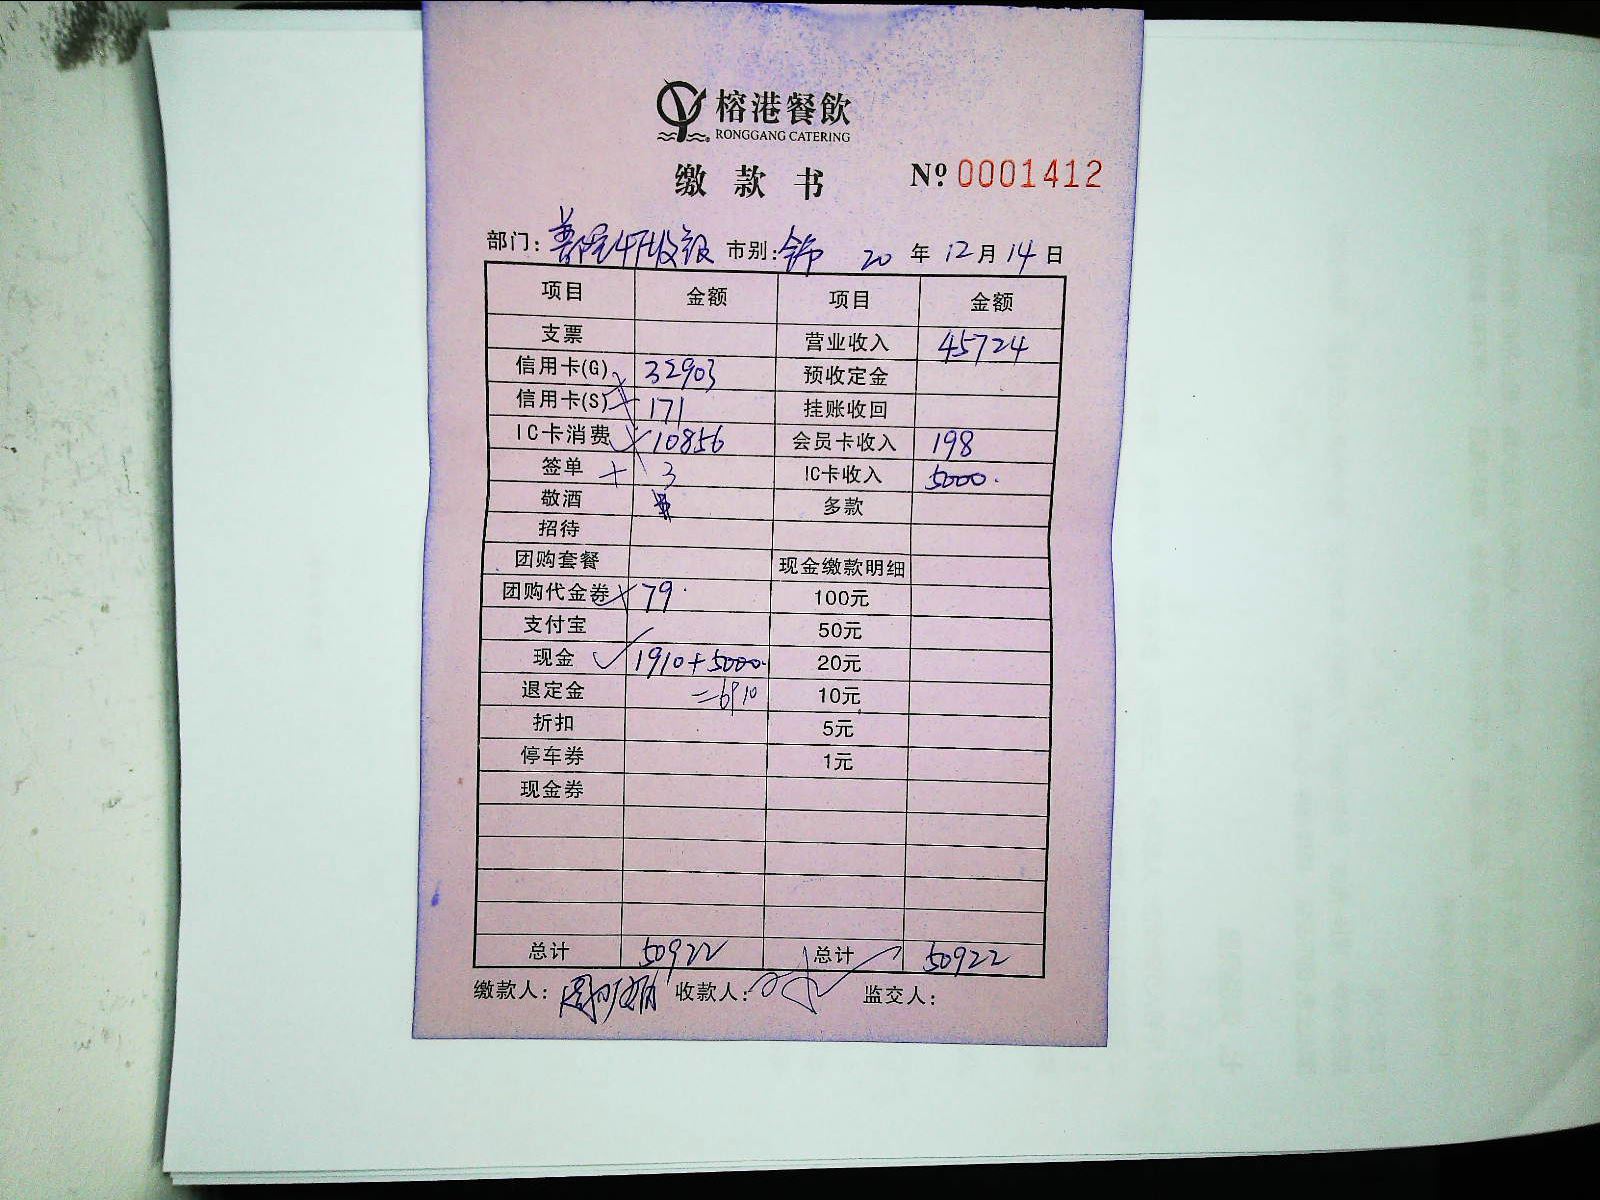 榕港餐飲
RONGGANG CATERING
缴款书 Nº 0001412
部门: 市别: 20 年 12 月 14 日
项目 金额 项目 金额
支票 营业收入 45724
信用卡(G) 32903 预收定金
信用卡(S) 171 挂账收回
IC卡消费 10856 会员卡收入 198
签单 3 IC卡收入 5000.
敬酒 多款
招待
团购套餐 现金缴款明细
团购代金券 79. 100元
支付宝 50元
现金 1910+5000. 20元
退定金 =6910 10元
折扣 5元
停车券 1元
现金券
总计 50922 总计 50922
缴款人: 收款人: 监交人: